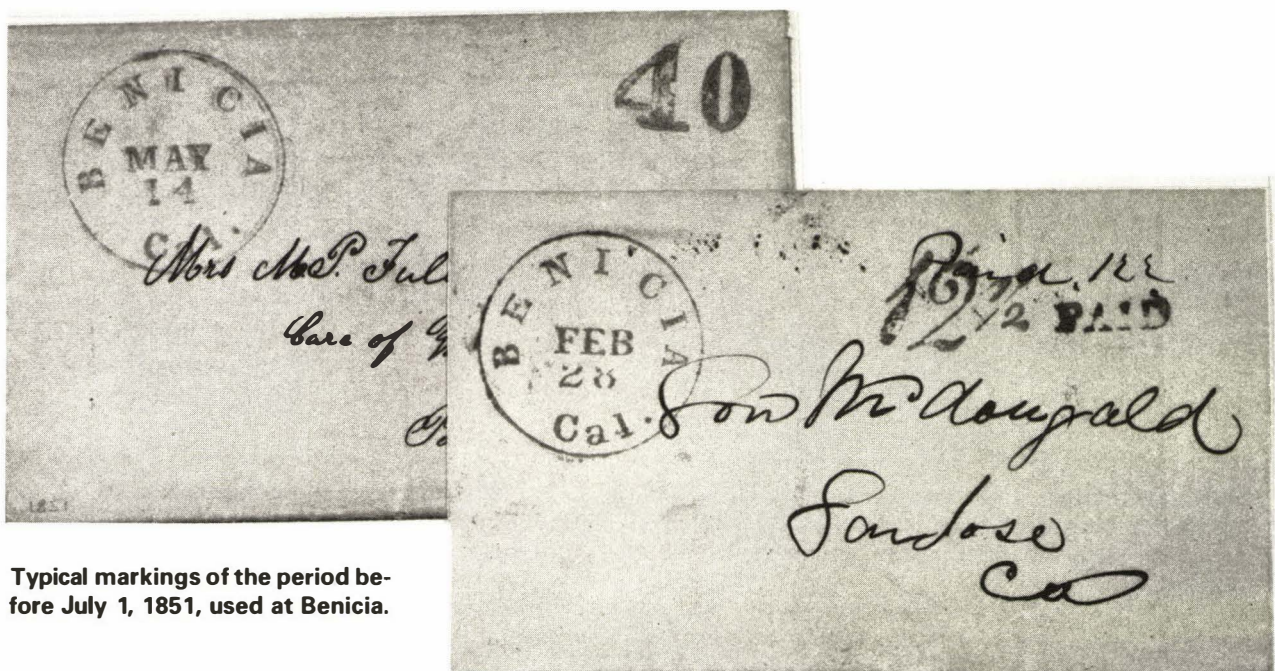 BENICIA
MAY
14
Cal.
40
Mrs M.P. Ful
Care of
BENICIA
FEB
28
Cal.
Paid
12 1/2 PAID
Gov McDougald
Sandose
Cal
Typical markings of the period be-
fore July 1, 1851, used at Benicia.